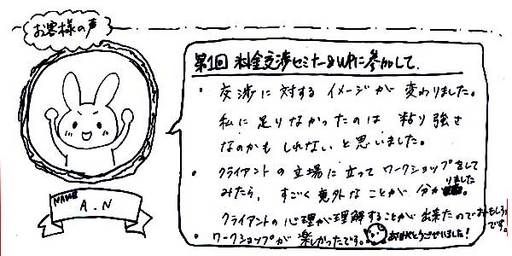 お客様の声
第1回 料金交渉セミナー&WPに参加して.
・交渉に対するイメージが変わりました。
私に足りなかったのは 粘り強さ
なのかもしれないと思いました。
・クライアントの立場に立ってワークショップをして
みたら、すごく意外なことが分かりました。
クライアントの心理が理解することが出来たのでおもしろかったです。
・ワークショップが楽しかったです。ありがとうございました!
NAME
A.N